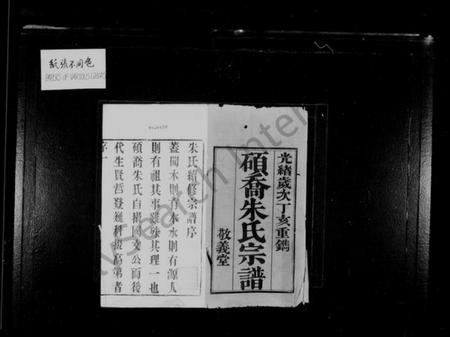 紙張不同色
PAPERS OF VARIOUS COLORS
光緒歲次丁亥重鐫
碩喬朱氏宗譜
敬義堂
朱氏續修宗譜序
蓋聞木則有本水則有源人
則有祖其事雖殊其理一也
碩喬朱氏自徽國文公而後
代生賢哲登科拔高第者
序一